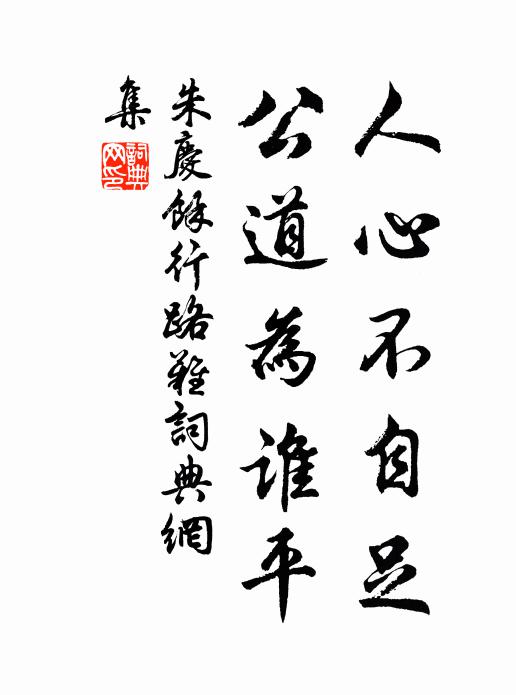 人心不自足
公道為誰平
朱慶餘行路難詞典網
集
詞典
网印